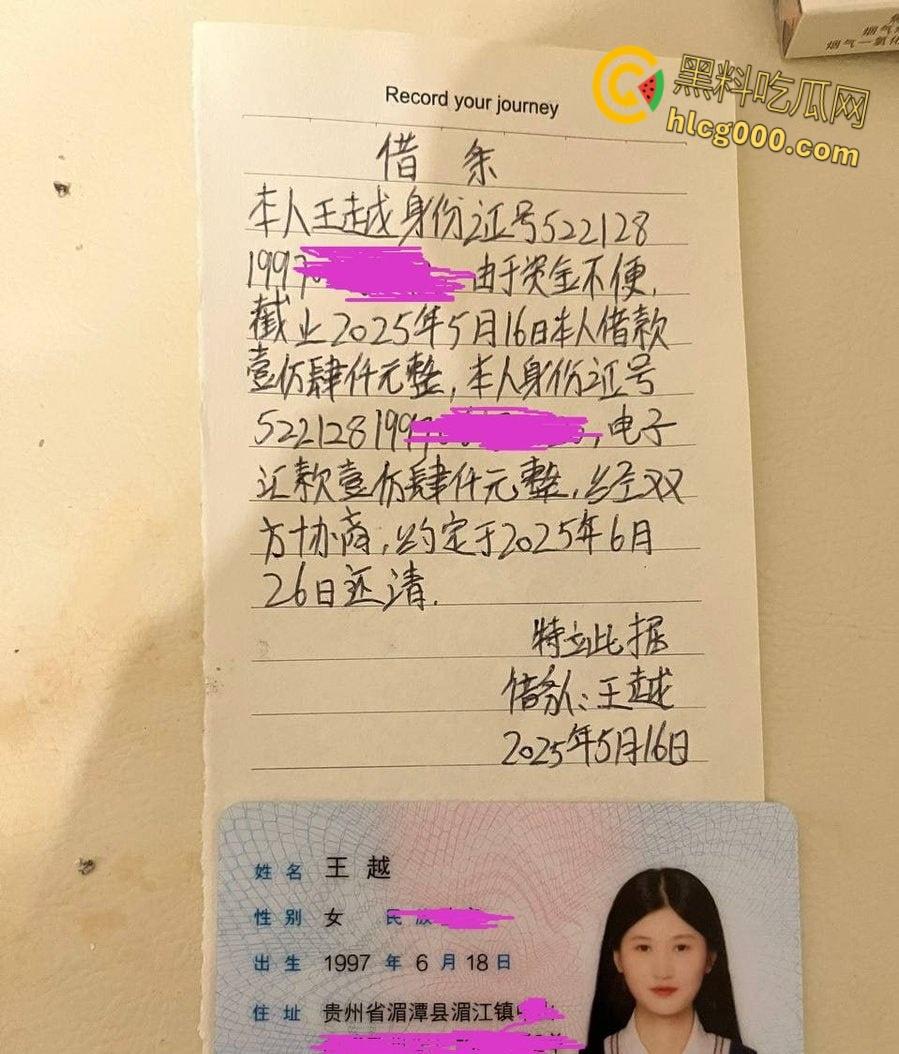 烟气
烟气一氧化
黑料吃瓜网
hlcg000.com
Record your journey
借条
本人王越身份证号522128
1997 由于资金不便,
截止2025年5月16日本人借款
壹仿肆仟元整,本人身份证号
5221281997 ,电子
汇款壹仿肆仟元整,经双
方协商,约定于2025年6月
26日还清.
特立此据
借条人:王越
2025年5月16日
姓名 王越
性别 女 民族
出生 1997年6月18日
住址 贵州省湄潭县湄江镇